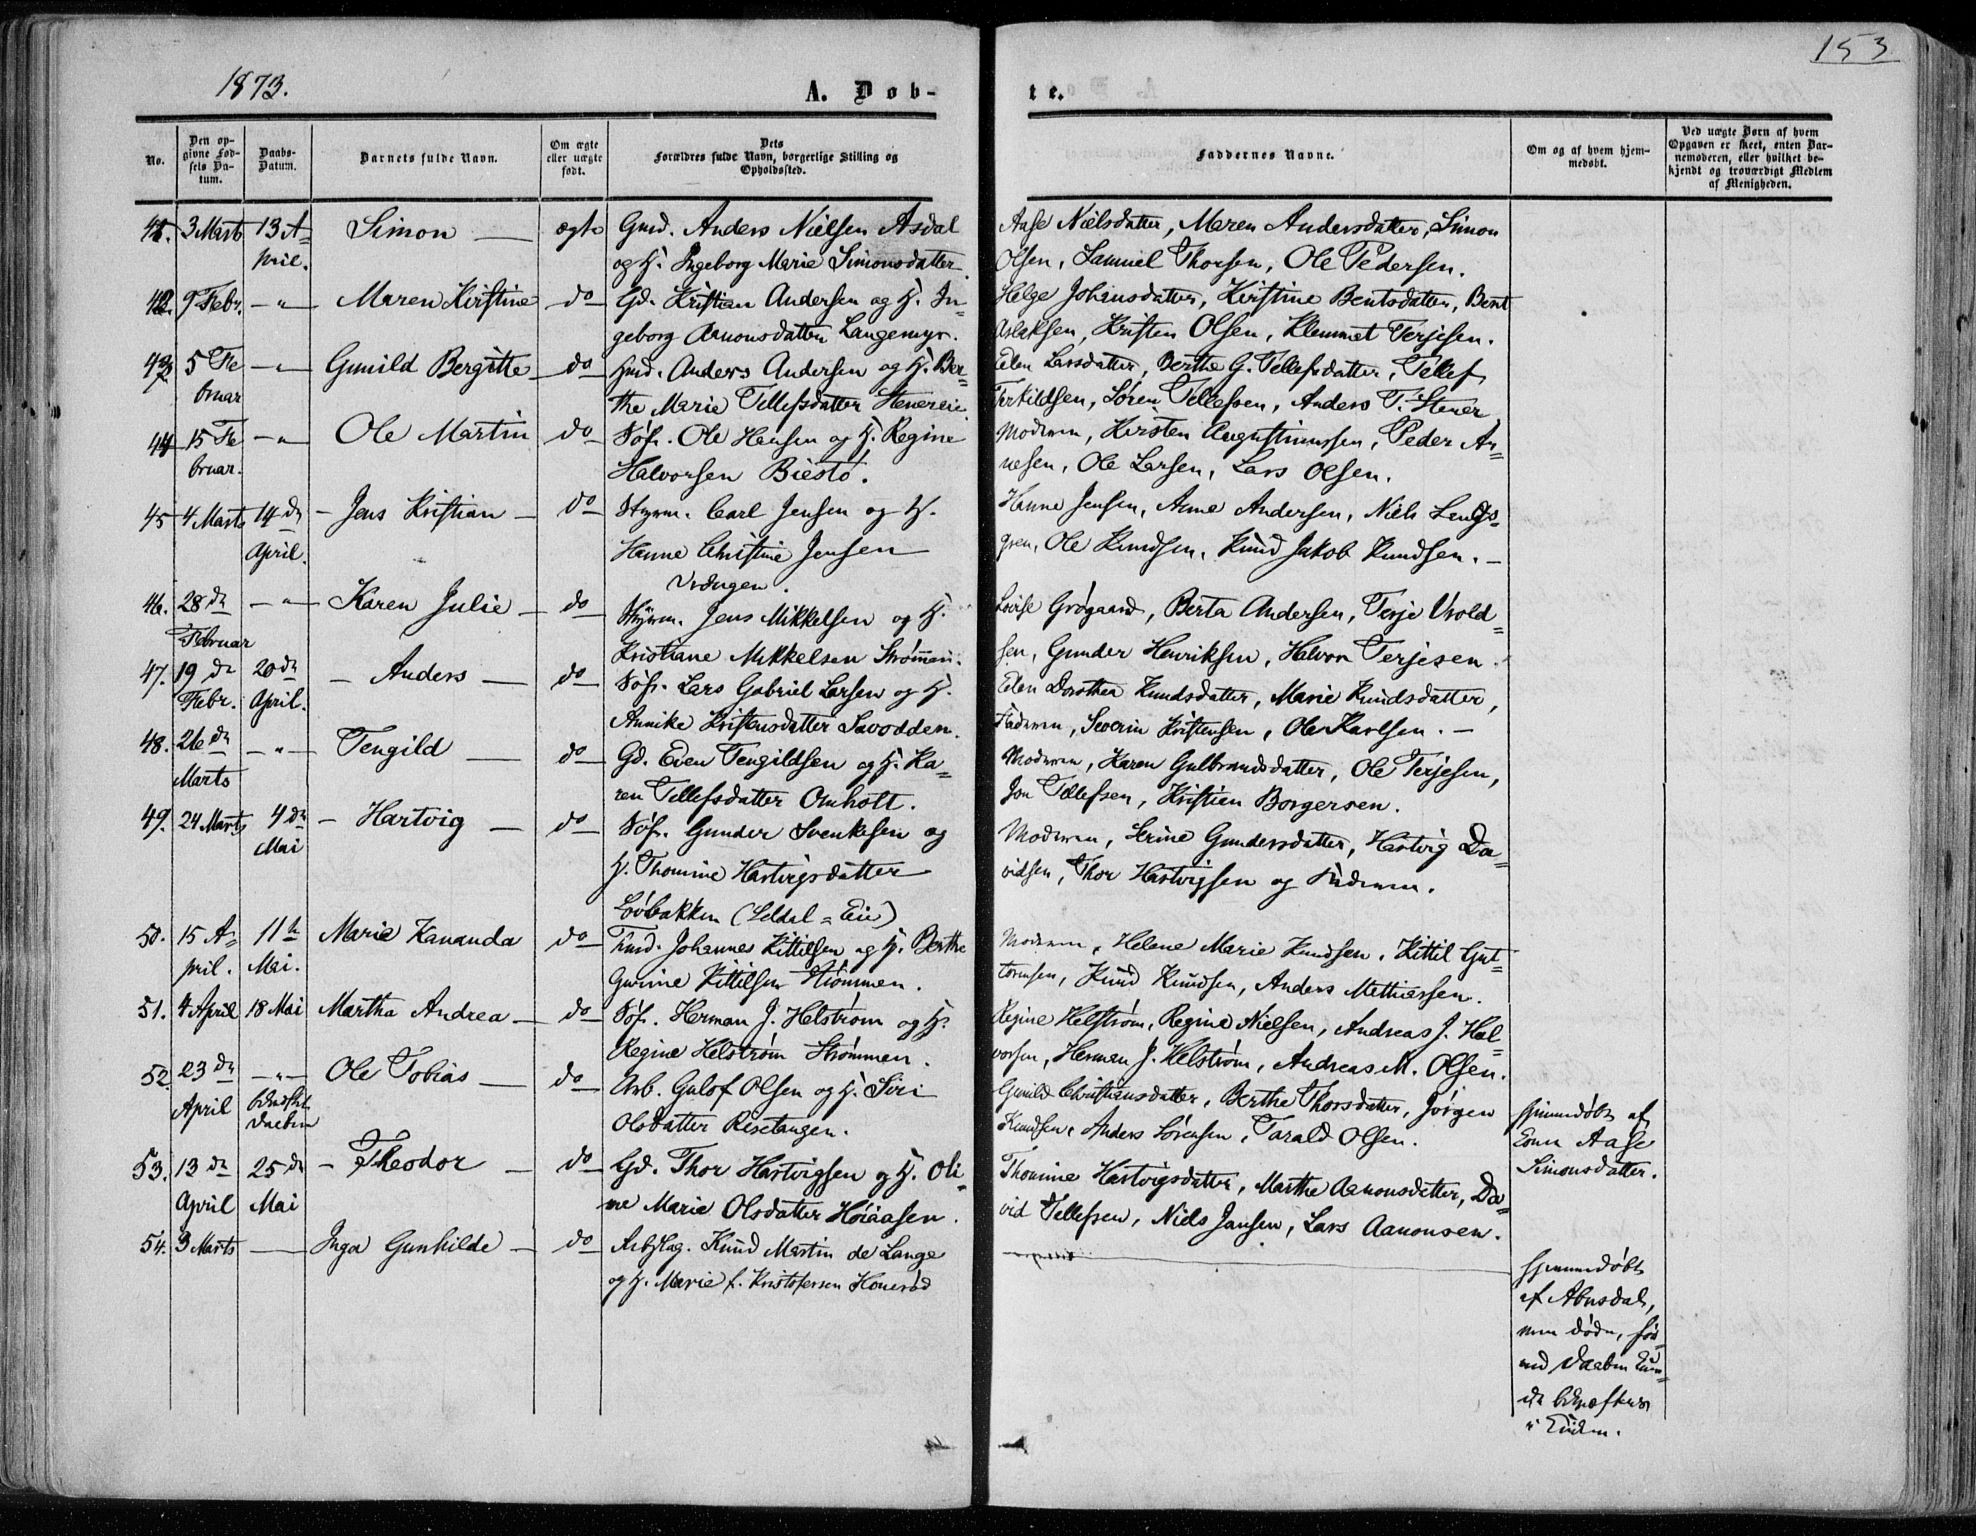 1873.
A. Døb-
te.
153
No.
Den op-
givne Fød-
sels Da-
tum.
Daabs-
Datum.
Barnets fulde Navn.
Om ægte
eller uægte
født.
Dets
Forældres fulde Navn, borgerlige Stilling og
Opholdssted.
Faddernes Navne.
Om og af hvem hjem-
medøbt.
Ved uægte Børn af hvem
Opgaven er skeet, enten Bar-
nemoderen, eller hvilket be-
kjendt og troværdigt Medlem
af Menigheden.
41. 3 Marts 13 A= Simon — ægte Gmd. Anders Nielsen Asdal
pril. og H. Ingeborg Marie Simonsdatter.
Aase Nielsdatter, Maren Andersdatter, Simon
Olsen, Samuel Thorsen, Ole Pedersen.
42. 9 Febr. —"— Maren Kirstine do Gd. Kristian Andersen og H. In=
geborg Aanonsdatter Langemyr.
Helge Johansdatter, Kirstine Bentsdatter, Bent
Aslaksen, Kristen Olsen, Klemmet Terjesen.
43. 5 Fe —"— Gunild Bergitte do Hmd. Anders Andersen og H. Ber=
bruar the Marie Tellefsdatter Stenereie
Elen Larsdatter, Berthe G. Tellefsdatter, Tellef
Terkildsen, Søren Tellefsen, Anders T. Stener
44 15 Fe —"— Ole Martin do Søf. Ole Hansen og H. Regine
bruar. Halvorsen Biestø.
Moderen, Kirsten Augustinussen, Peder Ar=
nesen, Ole Larsen, Lars Olsen.
45 4 Marts 14 de — Jens Kristian — do Styrm. Carl Jensen og H.
April. Hanne Christine Jensen
Vrængen.
Hanne Jensen, Anne Andersen, Niels Lengs=
gren, Ole Knudsen, Knud Jakob Knudsen. —
46. 28 de —"— Karen Julie — do Styrm. Jens Mikkelsen og H.
Februar Kristiane Mikkelsen Strømmen.
Lovise Grøgaard, Berta Andersen, Terje Vrold=
sen, Gunder Henriksen, Halvor Terjesen.
47. 19 de 20 de — Anders — do Søf. Lars Gabriel Larsen og H.
Febr. April. Annike Kristensdatter Savodden.
Elen Dorothea Knudsdatter, Marie Knudsdatter,
Faderen, Severin Kristensen, Ole Karlsen. —
48. 26 de —"— Tengild — do Gd. Even Tengildsen og H. Ka=
Marts ren Tellefsdatter Omholt.
Moderen, Karen Gulbrandsdatter, Ole Terjesen,
Jon Tellefsen, Kristien Borgersen.
49. 24 Marts 4 de — Hartvig — do Søf. Gunder Svenksen og
Mai H. Thomine Hartvigsdatter
Løvbakken (Leldal=Eie)
Moderen, Serine Gundersdatter, Hartvig Da=
vidsen, Thor Hartvigsen og Faderen.
50. 15 A= 11te Marie Kananda do Tmd. Johannes Kittilsen og H. Berthe
pril. Mai. Gurine Kittilsen Strømmen.
Moderen, Helene Marie Knudsen, Kittil Gut=
tormsen, Knud Knudsen, Anders Mathiassen.
51. 4 April 18 Mai Martha Andrea — do Søf. Herman J. Helstrøm og H.
Regine Helstrøm Strømmen.
Regine Helstrøm, Regine Nielsen, Andreas J. Hal=
vorsen, Herman J. Helstrøm, Andreas M. Olsen.
52. 23 de —"— Ole Tobias — do Arb. Gulof Olsen og H. Siri
April Daaben Olsdatter Risetangen.
Gunild Christiansdatter, Berthe Thorsdatter, Jørgen
Knudsen, Anders Sørensen, Tarald Olsen.
Hjemmedøbt af
Aase
Simonsdatter.
53. 13 de 25 de — Theodor — do Gd. Thor Hartvigsen og H. Oli=
April Mai ne Marie Olsdatter Høiaasen.
Thomine Hartvigsdatter, Marthe Aanonsdatter, Da=
vid Tellefsen, Niels Jansen, Lars Aanonsen.
54. 3 Marts — Inga Gunhilde — do Knud Martin de Lange
og H. Marie f. Kristofersen
Hjemmedøbt
af
men døde, før